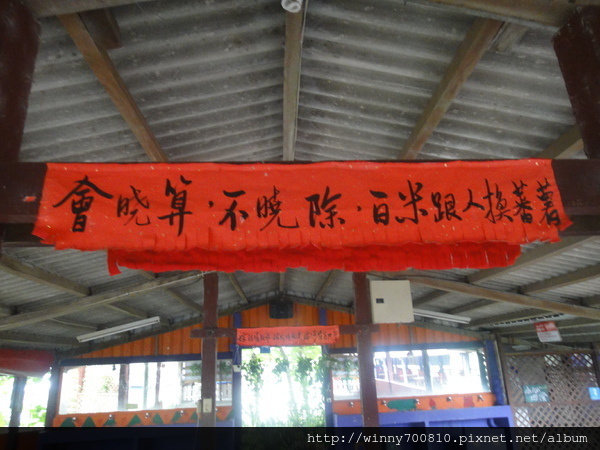 會曉算·不曉除·百米跟人換蕃薯
http://winny700810.pixnet.net/album